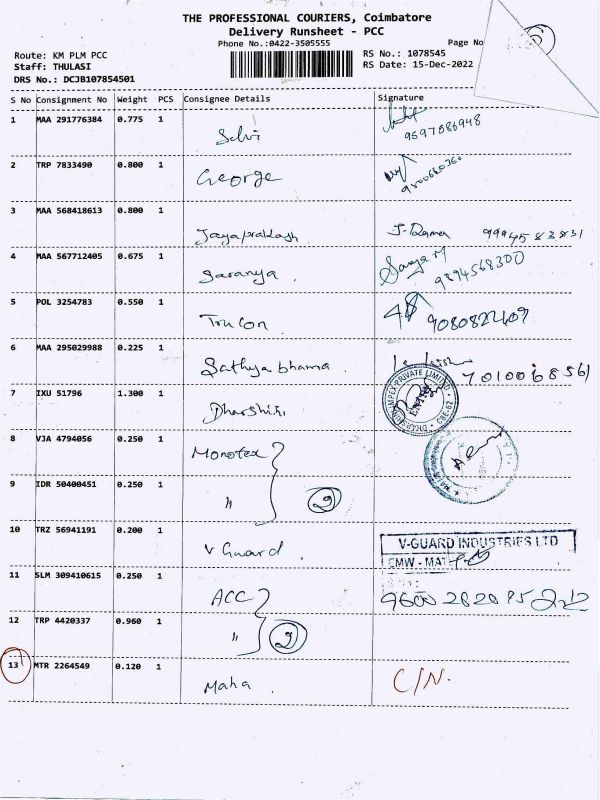 THE PROFESSIONAL COURIERS, Coimbatore
Delivery Runsheet - PCC
Phone No.:0422-3505555
Page No
Route: KM PLM PCC
RS No.: 1078545
Staff: THULASI
RS Date: 15-Dec-2022
DRS No.: DCJB107854501
S No Consignment No Weight PCS Consignee Details Signature
1 MAA 291776384 0.775 1 Selvi 9597086948
2 TRP 7833490 0.800 1 George
3 MAA 568418613 0.800 1 Jayaprakash 9994583831
4 MAA 567712405 0.675 1 Saranya. 9894568300
5 POL 3254783 0.550 1 Trucon
6 MAA 295029988 0.225 1 Sathya bhama. 7010068561
7 IXU 51796 1.300 1 Dharshini
8 VJA 4794056 0.250 1 Monotex
9 IDR 50400451 0.250 1 " 2
10 TRZ 56941191 0.200 1 V Guard. V-GUARD INDUSTRIES LTD
11 SLM 309410615 0.250 1 ACC
12 TRP 4420337 0.960 1 " 2
13 MTR 2264549 0.120 1 Maha. C/N.